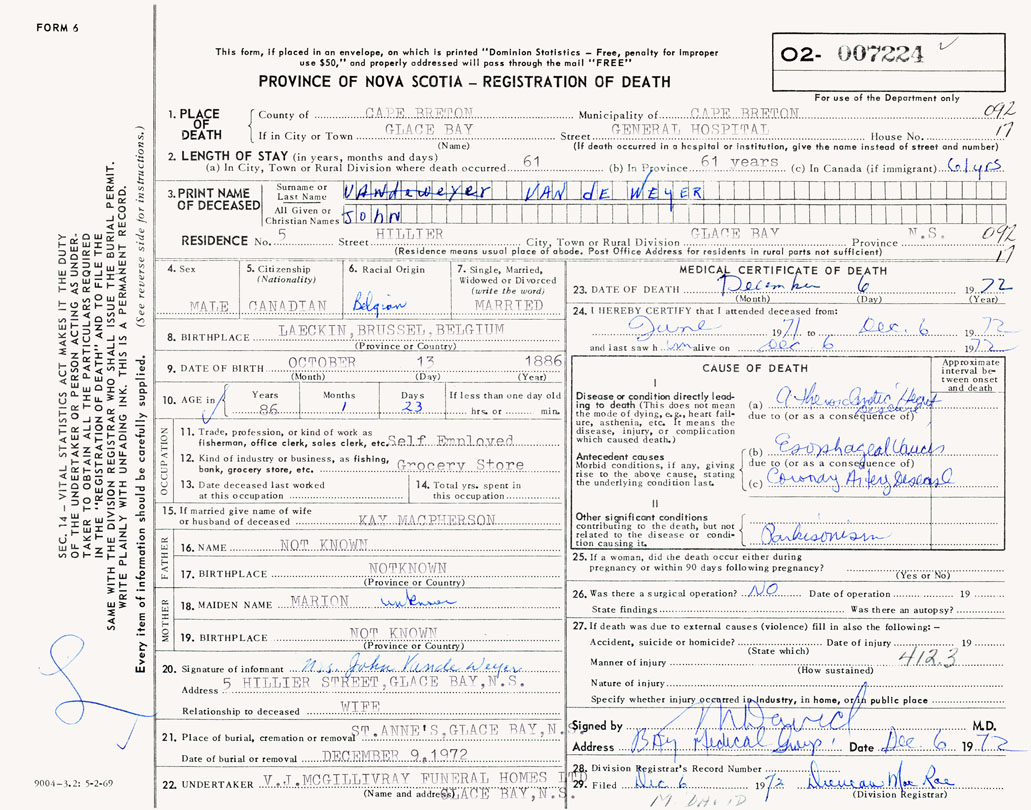 FORM 6
This form, if placed in an envelope, on which is printed "Dominion Statistics – Free, penalty for improper
use $50," and properly addressed will pass through the mail "FREE"
PROVINCE OF NOVA SCOTIA – REGISTRATION OF DEATH
02- 007224
For use of the Department only
SEC. 14 – VITAL STATISTICS ACT MAKES IT THE DUTY
OF THE UNDERTAKER OR PERSON ACTING AS UNDER-
TAKER TO OBTAIN ALL THE PARTICULARS REQUIRED
IN THE "REGISTRATION OF DEATH" AND TO FILE THE
SAME WITH THE DIVISION REGISTRAR WHO SHALL ISSUE THE BURIAL PERMIT.
WRITE PLAINLY WITH UNFADING INK. THIS IS A PERMANENT RECORD.
Every item of information should be carefully supplied. (See reverse side for instructions.)
1. PLACE OF DEATH
County of CAPE BRETON Municipality of CAPE BRETON 092
If in City or Town GLACE BAY Street GENERAL HOSPITAL House No. 17
(Name) (If death occurred in a hospital or institution, give the name instead of street and number)
2. LENGTH OF STAY (in years, months and days)
(a) In City, Town or Rural Division where death occurred 61 (b) In Province 61 years (c) In Canada (if immigrant) 61 yrs
3. PRINT NAME OF DECEASED
Surname or Last Name VANdeweyer VAN de WEYER
All Given or Christian Names JOHN
RESIDENCE No. 5 Street HILLIER City, Town or Rural Division GLACE BAY Province N.S. 092
(Residence means usual place of abode. Post Office Address for residents in rural parts not sufficient) 17
4. Sex
MALE
5. Citizenship
(Nationality)
CANADIAN
6. Racial Origin
Belgian
7. Single, Married,
Widowed or Divorced
(write the word)
MARRIED
8. BIRTHPLACE LAECKIN, BRUSSEL, BELGIUM
(Province or Country)
9. DATE OF BIRTH OCTOBER 13 1886
(Month) (Day) (Year)
10. AGE in
Years Months Days If less than one day old
86 1 23 hrs. or min.
OCCUPATION
11. Trade, profession, or kind of work as
fisherman, office clerk, sales clerk, etc. Self Employed
12. Kind of industry or business, as fishing,
bank, grocery store, etc. Grocery Store
13. Date deceased last worked
at this occupation
14. Total yrs. spent in
this occupation
15. If married give name of wife
or husband of deceased KAY MACPHERSON
FATHER
16. NAME NOT KNOWN
17. BIRTHPLACE NOTKNOWN
(Province or Country)
MOTHER
18. MAIDEN NAME MARION unknown
19. BIRTHPLACE NOT KNOWN
(Province or Country)
20. Signature of informant Mrs. John Vande Weyer
Address 5 HILLIER STREET, GLACE BAY, N.S.
Relationship to deceased WIFE
21. Place of burial, cremation or removal ST. ANNE'S, GLACE BAY, N.S.
Date of burial or removal DECEMBER 9, 1972
22. UNDERTAKER V.J. MCGILLIVRAY FUNERAL HOMES LTD
(Name and address) GLACE BAY, N.S.
9004–3.2: 5-2-69
MEDICAL CERTIFICATE OF DEATH
23. DATE OF DEATH December 6 1972
(Month) (Day) (Year)
24. I HEREBY CERTIFY that I attended deceased from:
June 1971 to Dec. 6 1972
and last saw him alive on Dec 6 1972
CAUSE OF DEATH
Approximate
interval be-
tween onset
and death
I
Disease or condition directly lead-
ing to death (This does not mean
the mode of dying, e.g., heart fail-
ure, asthenia, etc. It means the
disease, injury, or complication
which caused death.)
(a) Atherosclerotic Heart Disease
due to (or as a consequence of)
Antecedent causes
Morbid conditions, if any, giving
rise to the above cause, stating
the underlying condition last.
(b) Esophageal
due to (or as a consequence of)
(c) Coronary Artery Disease
II
Other significant conditions
contributing to the death, but not
related to the disease or condi-
tion causing it.
Parkisonism
25. If a woman, did the death occur either during
pregnancy or within 90 days following pregnancy?
(Yes or No)
26. Was there a surgical operation? NO Date of operation 19
State findings Was there an autopsy?
27. If death was due to external causes (violence) fill in also the following: –
Accident, suicide or homicide? Date of injury 19
(State which)
Manner of injury 412.3
(How sustained)
Nature of injury
Specify whether injury occurred in Industry, in home, or in public place
Signed by M David M.D.
Address Bay Medical Group. Date Dec 6 1972
28. Division Registrar's Record Number
29. Filed Dec 6 1972 Duncan Mac Rae
M. DAVID (Division Registrar)